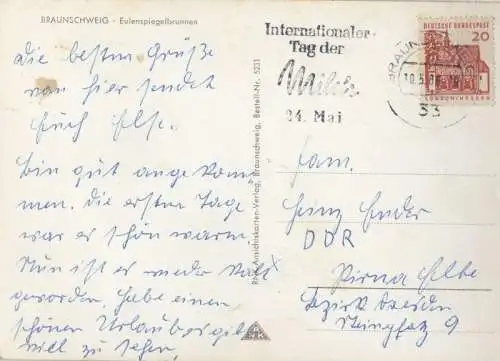 BRAUNSCHWEIG - Eulenspiegelbrunnen
die besten Grüße
von hier sendet
Euch Else.
Bin gut angekom
men. die ersten Tage
war er schön warm.
Nun ist er wieder kalt
geworden, habe einen
schönen Urlaub
viel zu sehen,
Ansichtskarten-Verlag, Braunschweig, Bestell-Nr. 5231
Internationaler
Tag der
Milch
24. Mai
DEUTSCHE BUNDESPOST
20
LORSCH/HESSEN
BRAUNSCHWEIG
10.5.
33
Fam.
Heinz Ender
DDR
Pirna Elbe
Bezirk Dresden
9